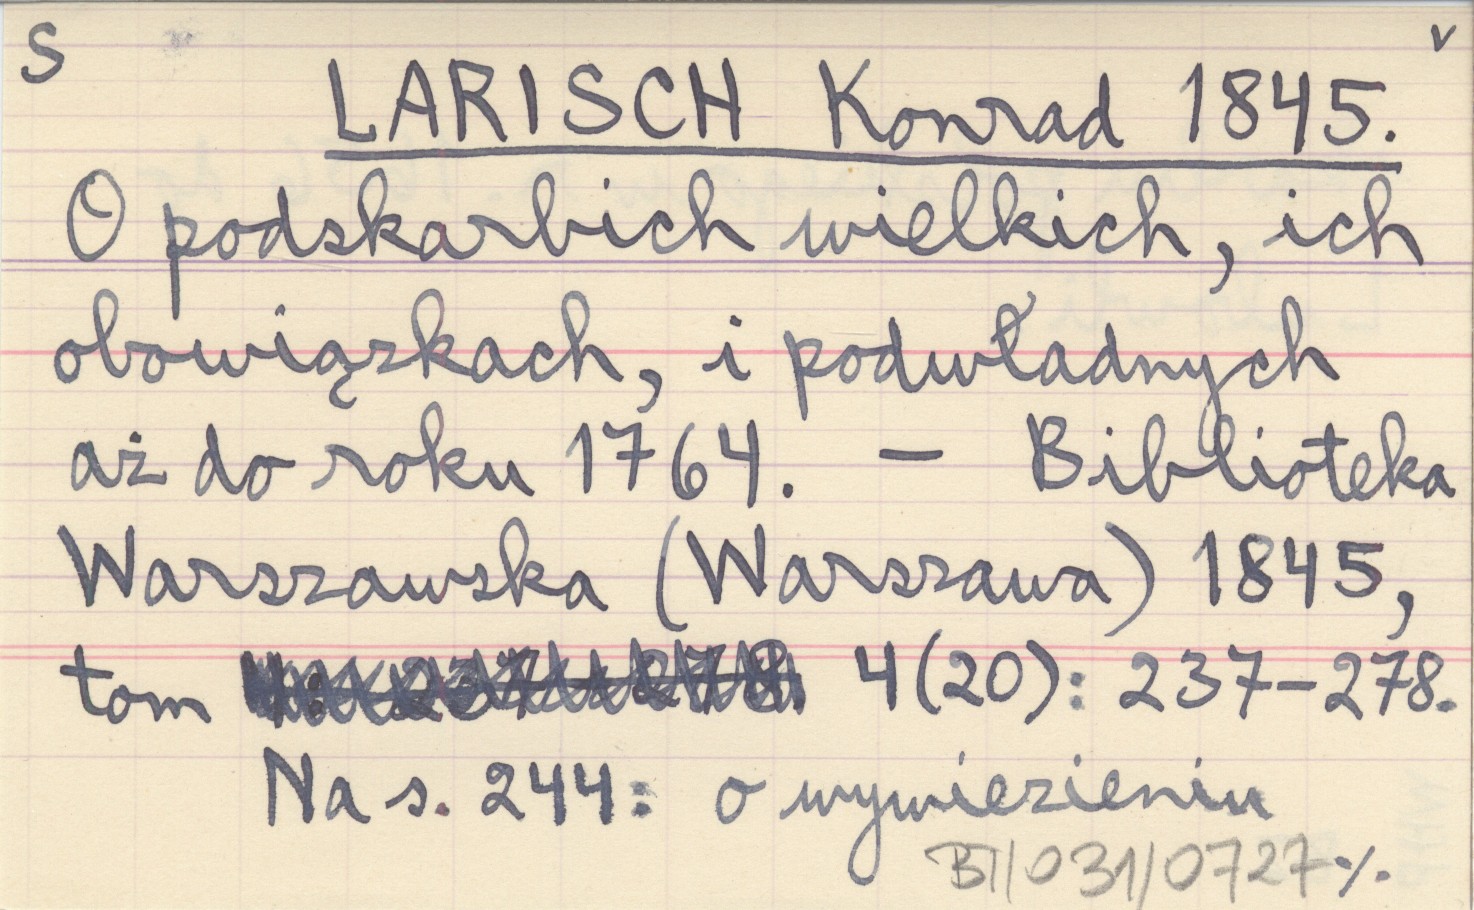 S v
LARISCH Konrad 1845.
O podskarbich wielkich, ich
obowiązkach, i podwładnych
aż do roku 1764. — Biblioteka
Warszawska (Warszawa) 1845,
tom 4(20): 237–278.
Na s. 244: o wywiezieniu
BT/031/0727 ./.